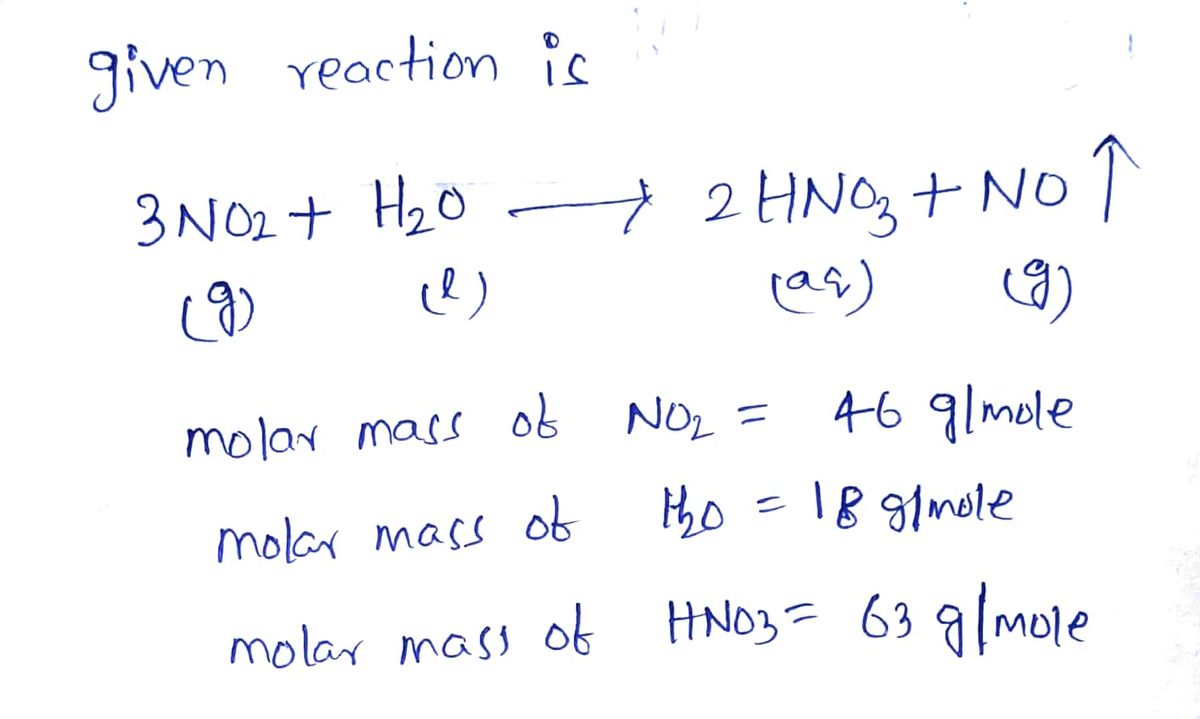 given reaction is
3NO₂ + H₂O → 2HNO₃ + NO ↑
(g) (l) (aq) (g)
molar mass of NO₂ = 46 g/mole
molar mass of H₂O = 18 g/mole
molar mass of HNO₃ = 63 g/mole